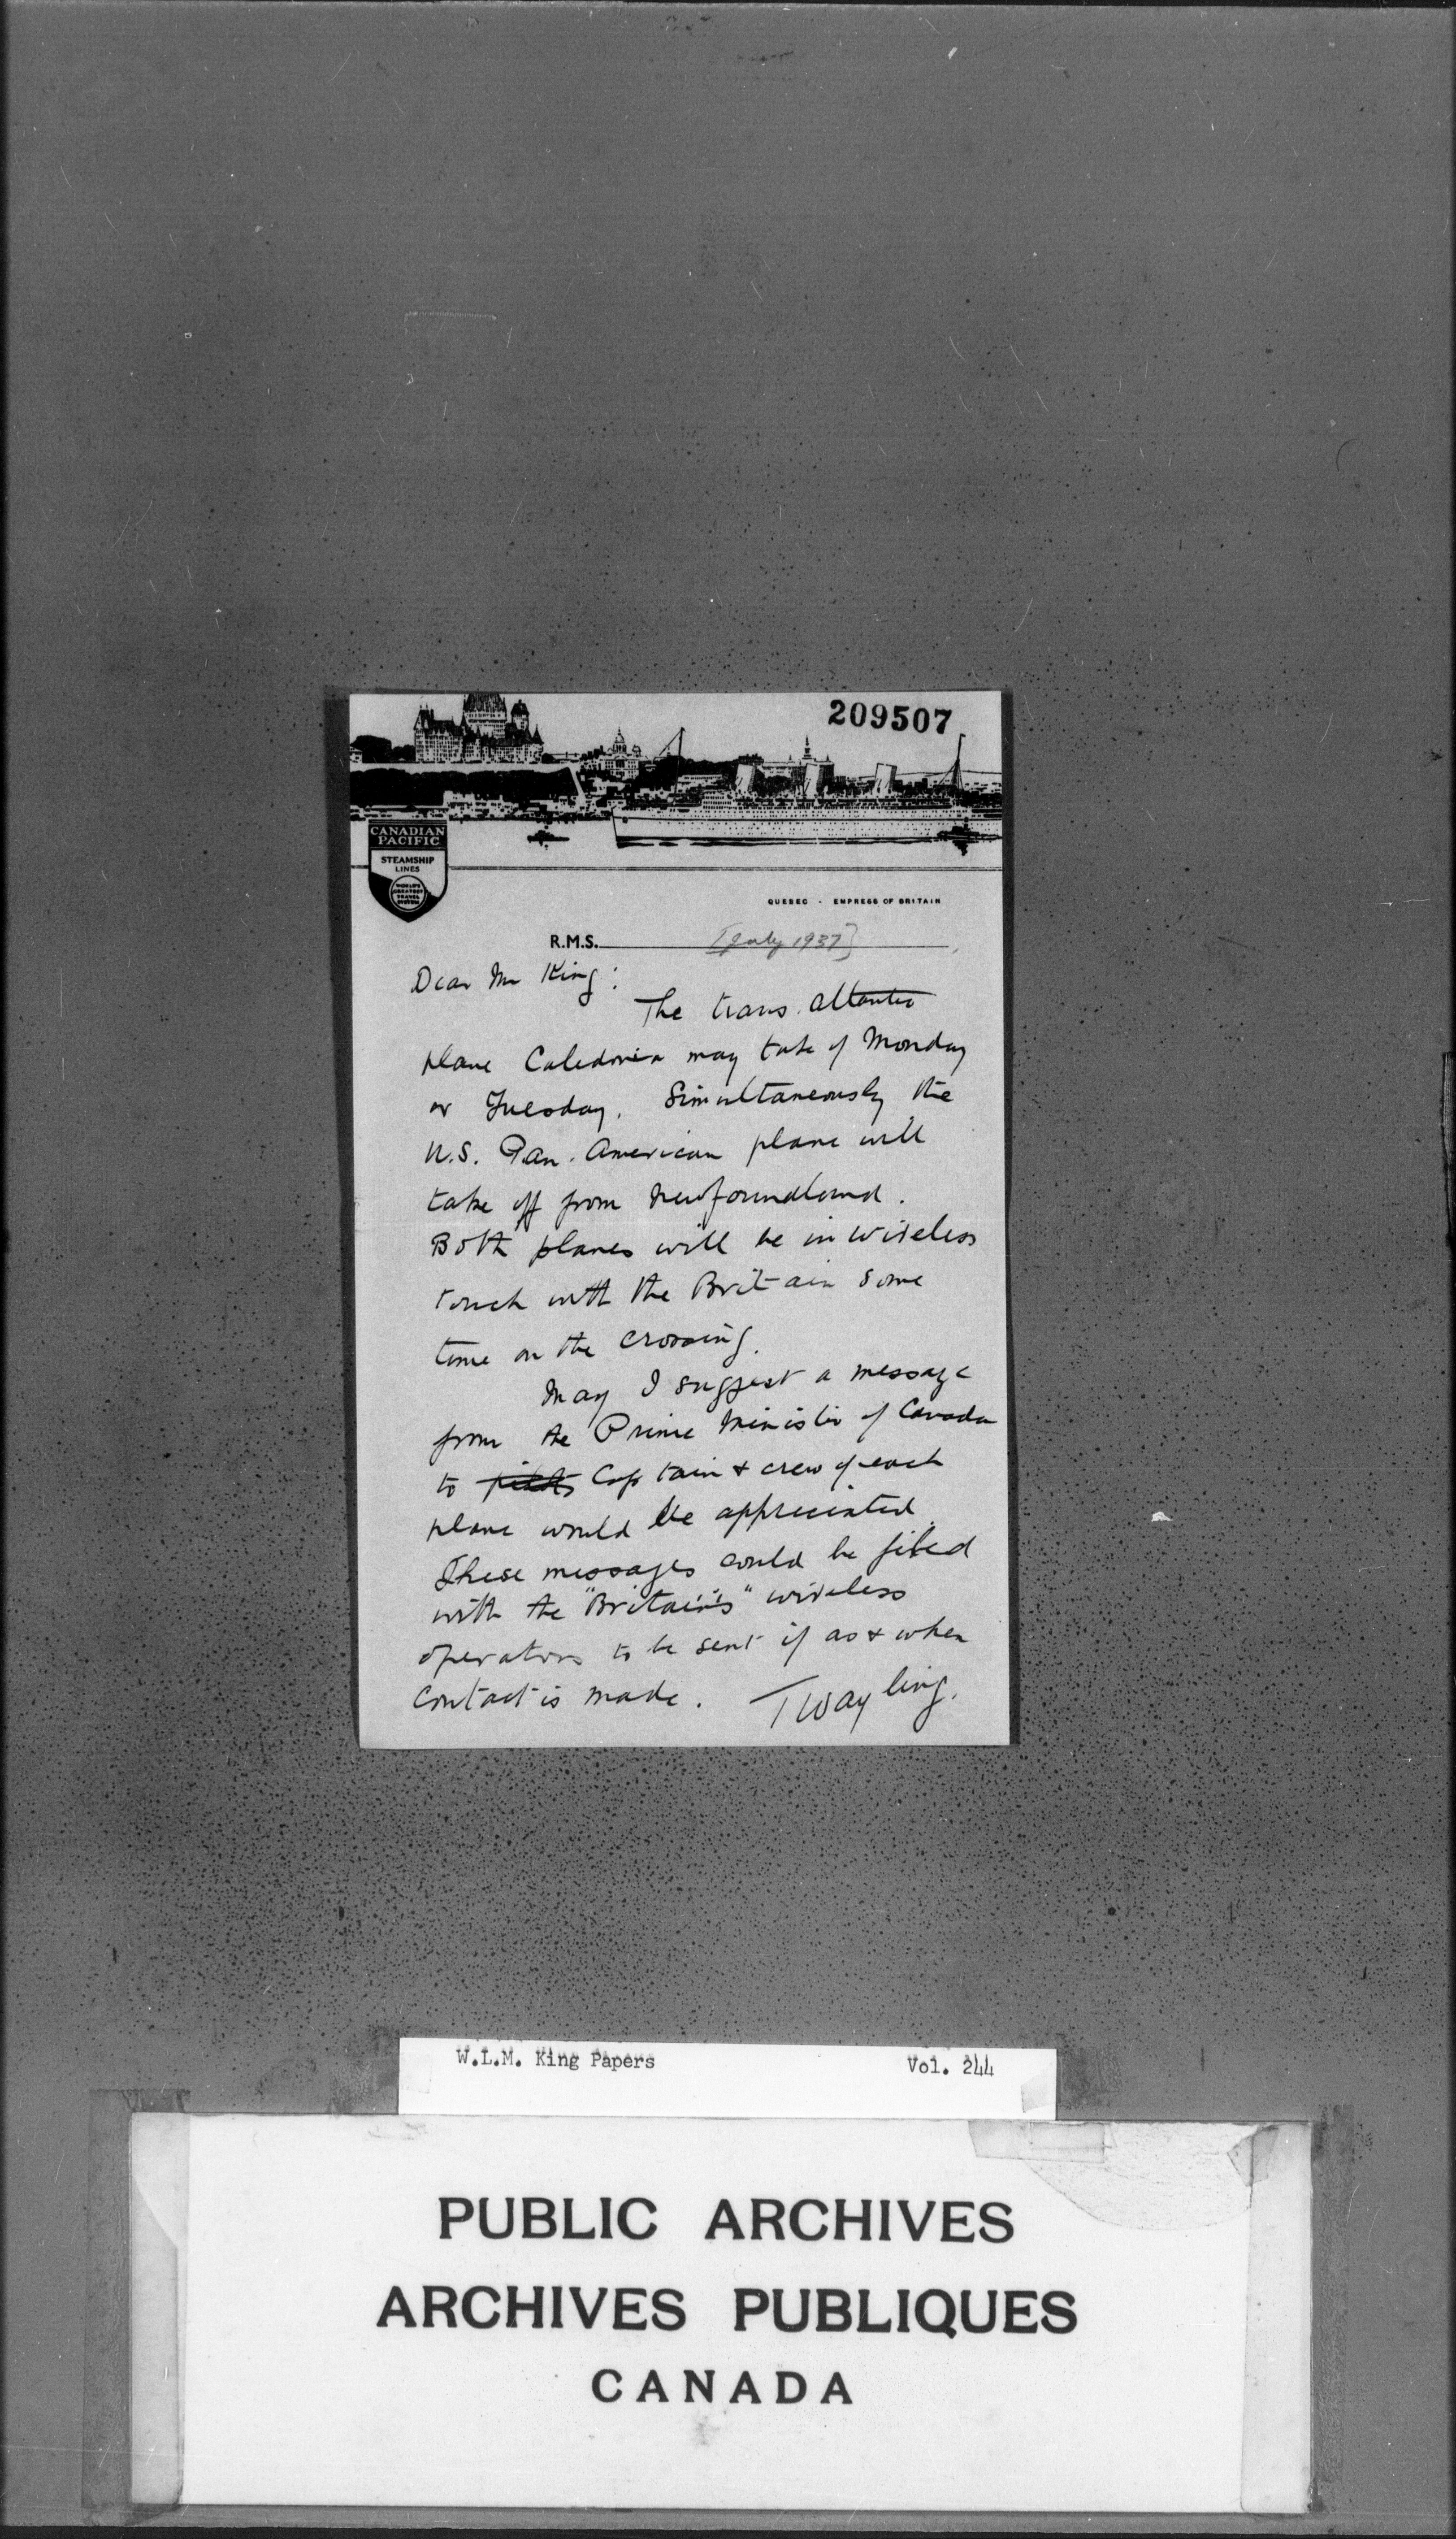 209507
CANADIAN
PACIFIC
STEAMSHIP
LINES
WORLD'S
GREATEST
TRAVEL
SYSTEM
QUEBEC - EMPRESS OF BRITAIN
R.M.S. [July 1937]
Dear Mr King:
The trans. atlantic
plane Caledonia may take of Monday
or Tuesday. Simultaneously the
U.S. Pan. American plane will
take off from Newfoundland.
Both planes will be in wireless
touch with the Britain some
time on the crossing.
May I suggest a message
from the Prime Minister of Canada
to pilots Captain & crew of each
plane would be appreciated.
These messages could be filed
with the "Britain's" wireless
operators to be sent if as & when
contact is made. T Wayling.
W.L.M. King Papers Vol. 244
PUBLIC ARCHIVES
ARCHIVES PUBLIQUES
CANADA